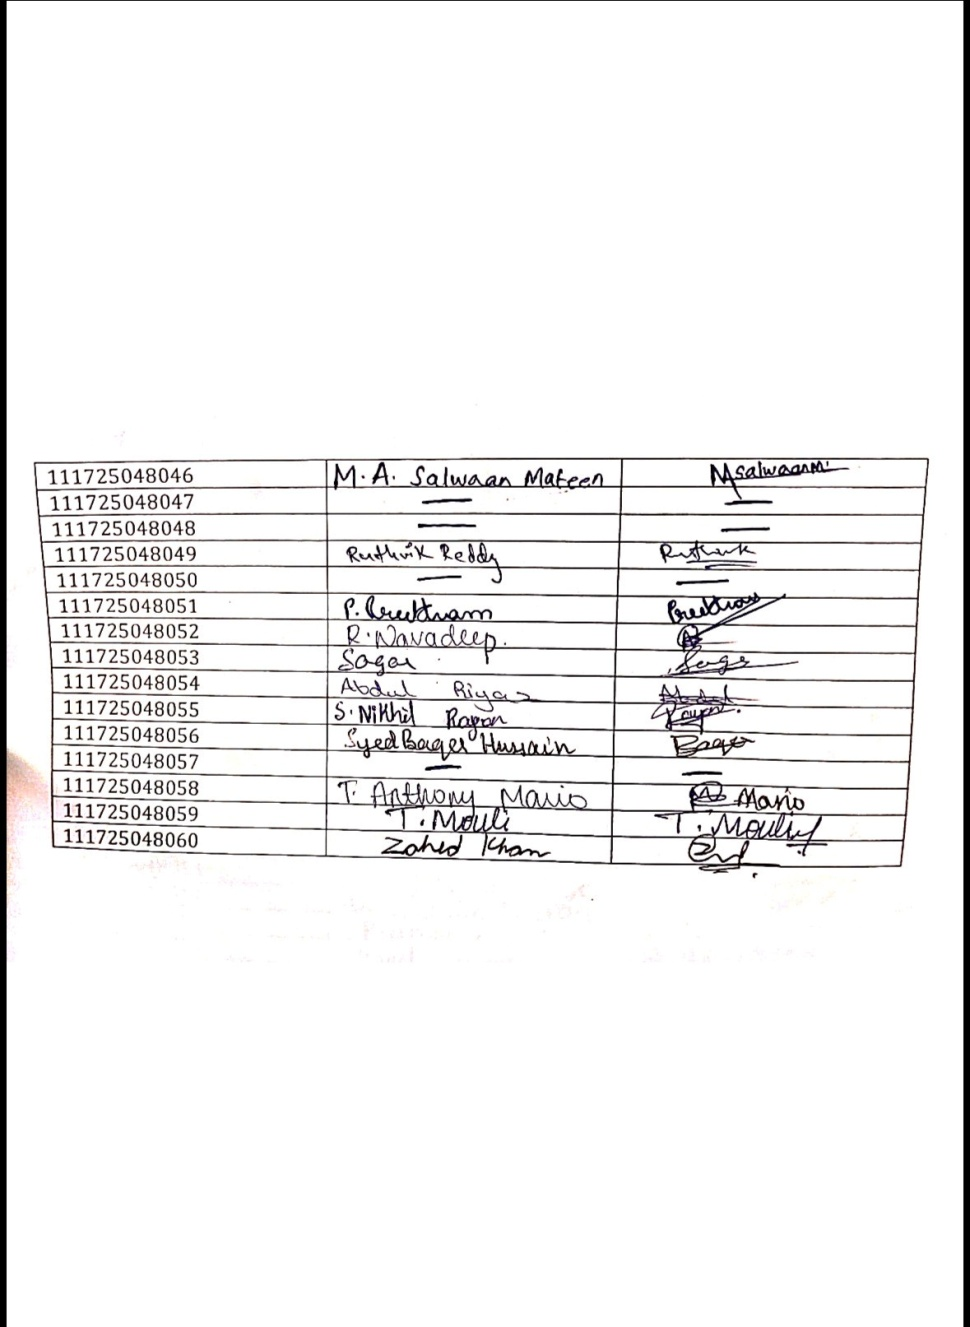 111725048046 M.A. Salwaan Mateen Msalwaanm
111725048047 — —
111725048048 — —
111725048049 Ruthvik Reddy Ruthvik
111725048050 — —
111725048051 P. Preetham Preetham
111725048052 R. Navadeep.
111725048053 Sagar Sagar
111725048054 Abdul Riyaz Abdul
111725048055 S. Nikhil Rayan Rayan.
111725048056 Syed Baqer Hussain Baqer
111725048057 — —
111725048058 T. Anthony Mario Mario
111725048059 T. Mouli T. Mouly
111725048060 Zahed Khan